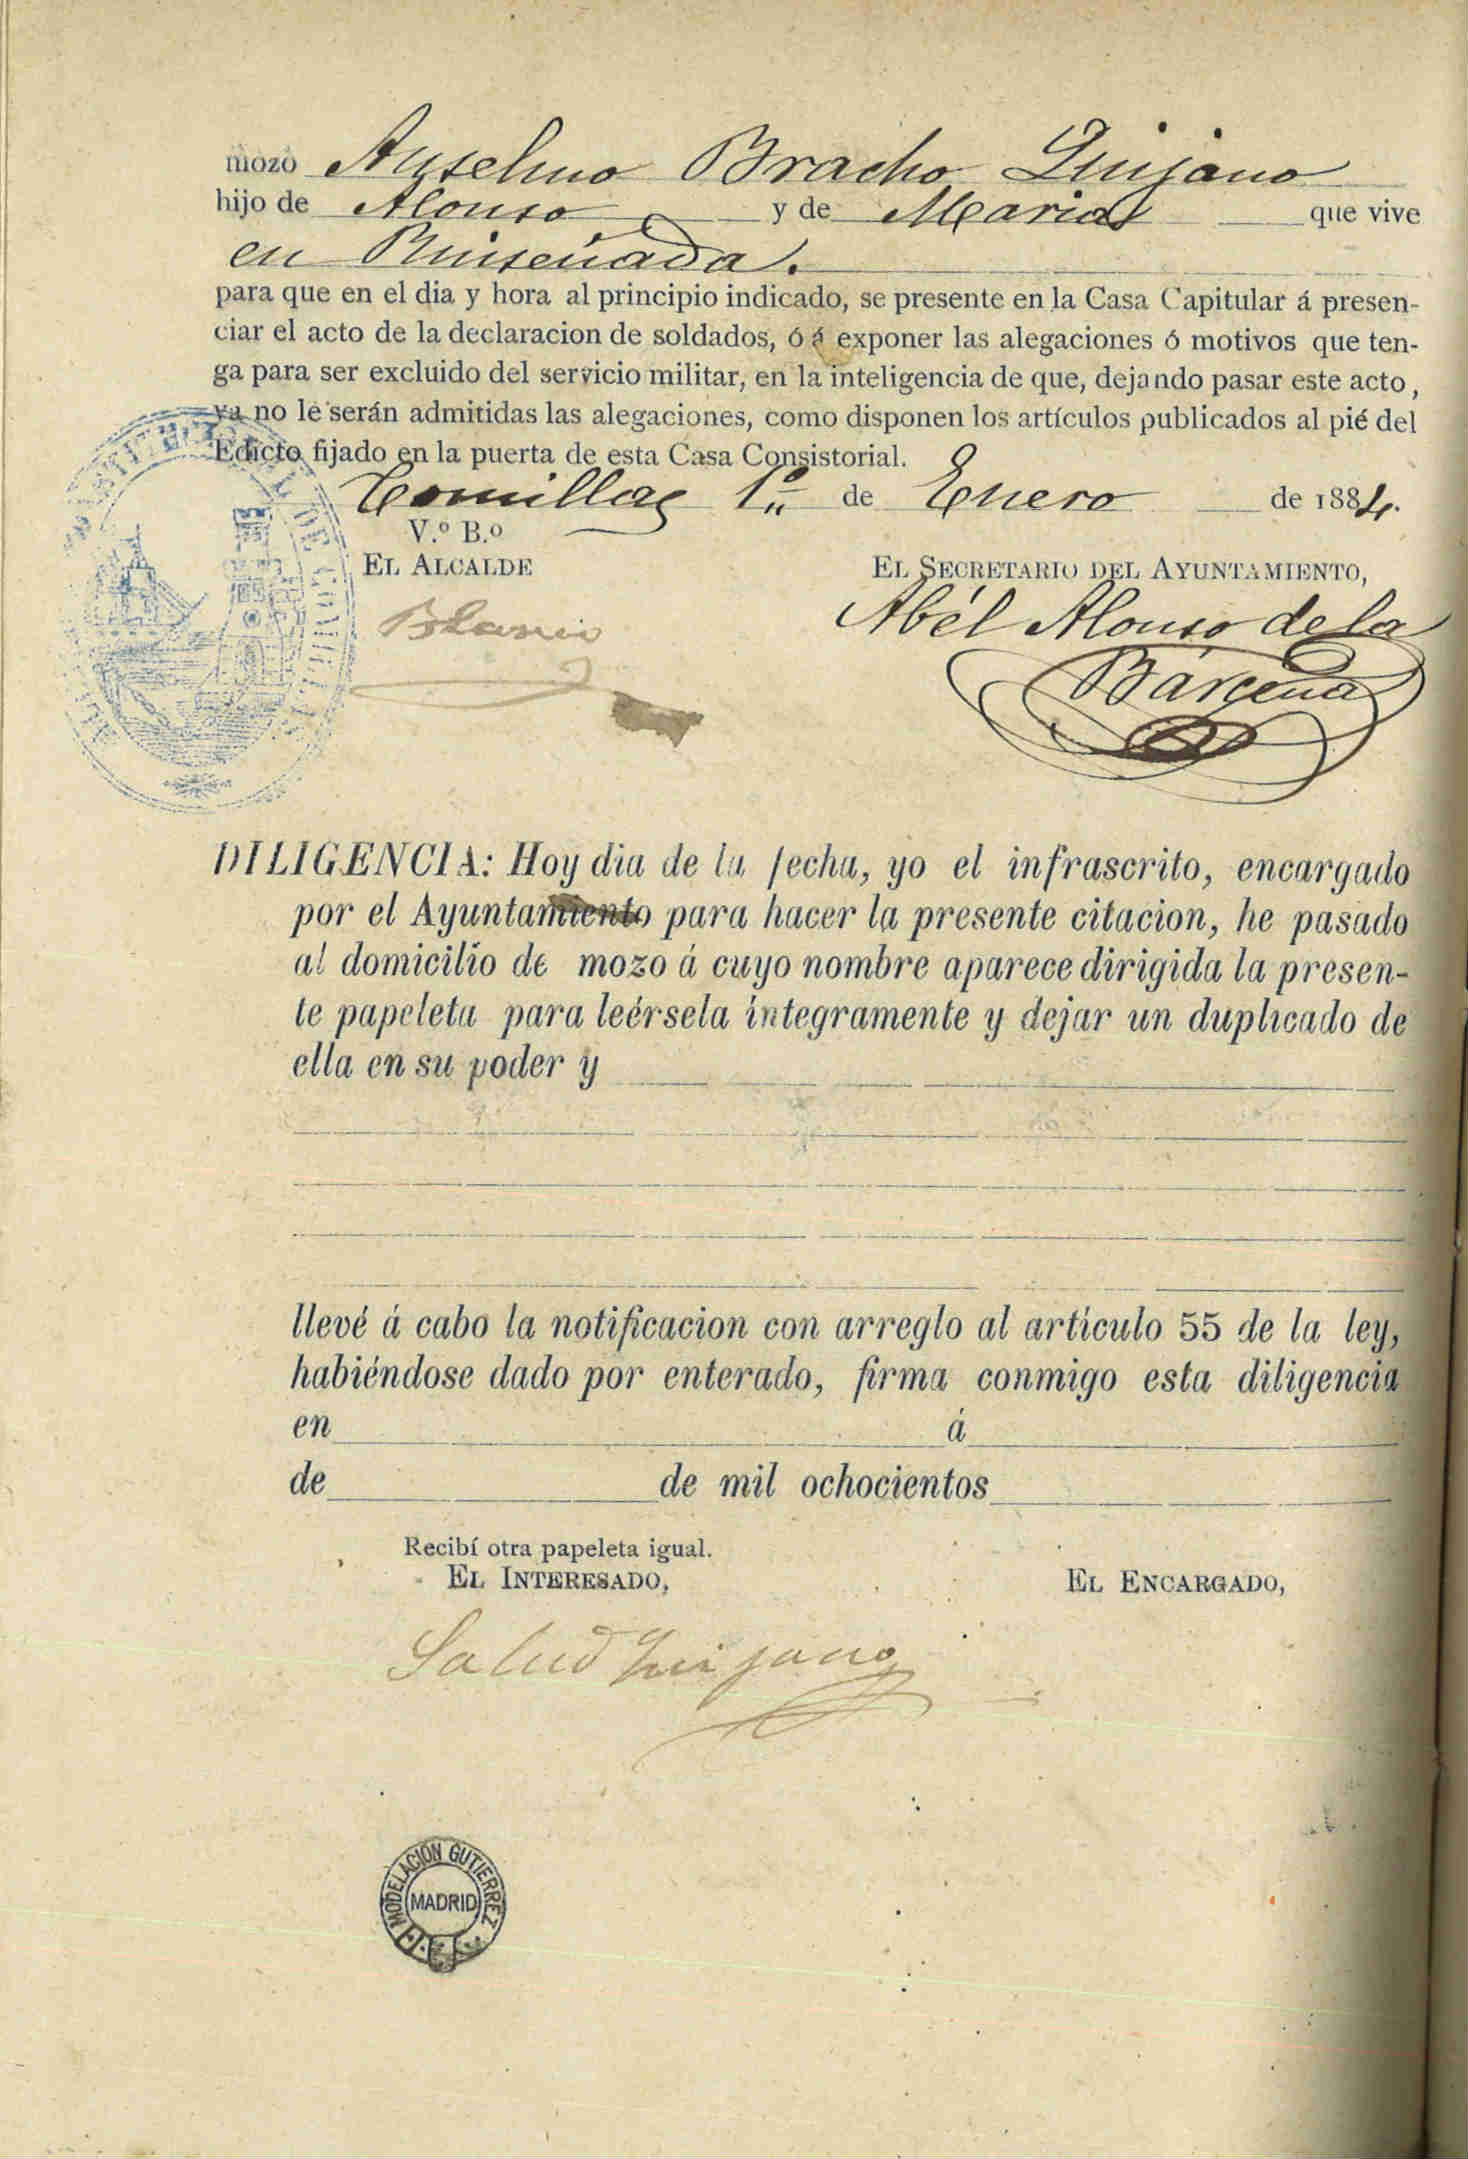 mozo Anselmo Bracho Quijano
hijo de Alonso y de Maria que vive
en Ruiseñada.
para que en el dia y hora al principio indicado, se presente en la Casa Capitular á presen-
ciar el acto de la declaracion de soldados, ó á exponer las alegaciones ó motivos que ten-
ga para ser excluido del servicio militar, en la inteligencia de que, dejando pasar este acto,
ya no le serán admitidas las alegaciones, como disponen los artículos publicados al pié del
Edicto fijado en la puerta de esta Casa Consistorial.
Comillas 1º de Enero de 1884.
V.º B.º
EL ALCALDE
EL SECRETARIO DEL AYUNTAMIENTO,
Abél Alonso de la
Bárcena
DILIGENCIA: Hoy dia de la fecha, yo el infrascrito, encargado
por el Ayuntamiento para hacer la presente citacion, he pasado
al domicilio de mozo á cuyo nombre aparece dirigida la presen-
te papeleta para leérsela íntegramente y dejar un duplicado de
ella en su poder y
llevé á cabo la notificacion con arreglo al artículo 55 de la ley,
habiéndose dado por enterado, firma conmigo esta diligencia
en á
de de mil ochocientos
Recibí otra papeleta igual.
EL INTERESADO,
EL ENCARGADO,
Salud Quijano
MODELACION GUTIERREZ
MADRID